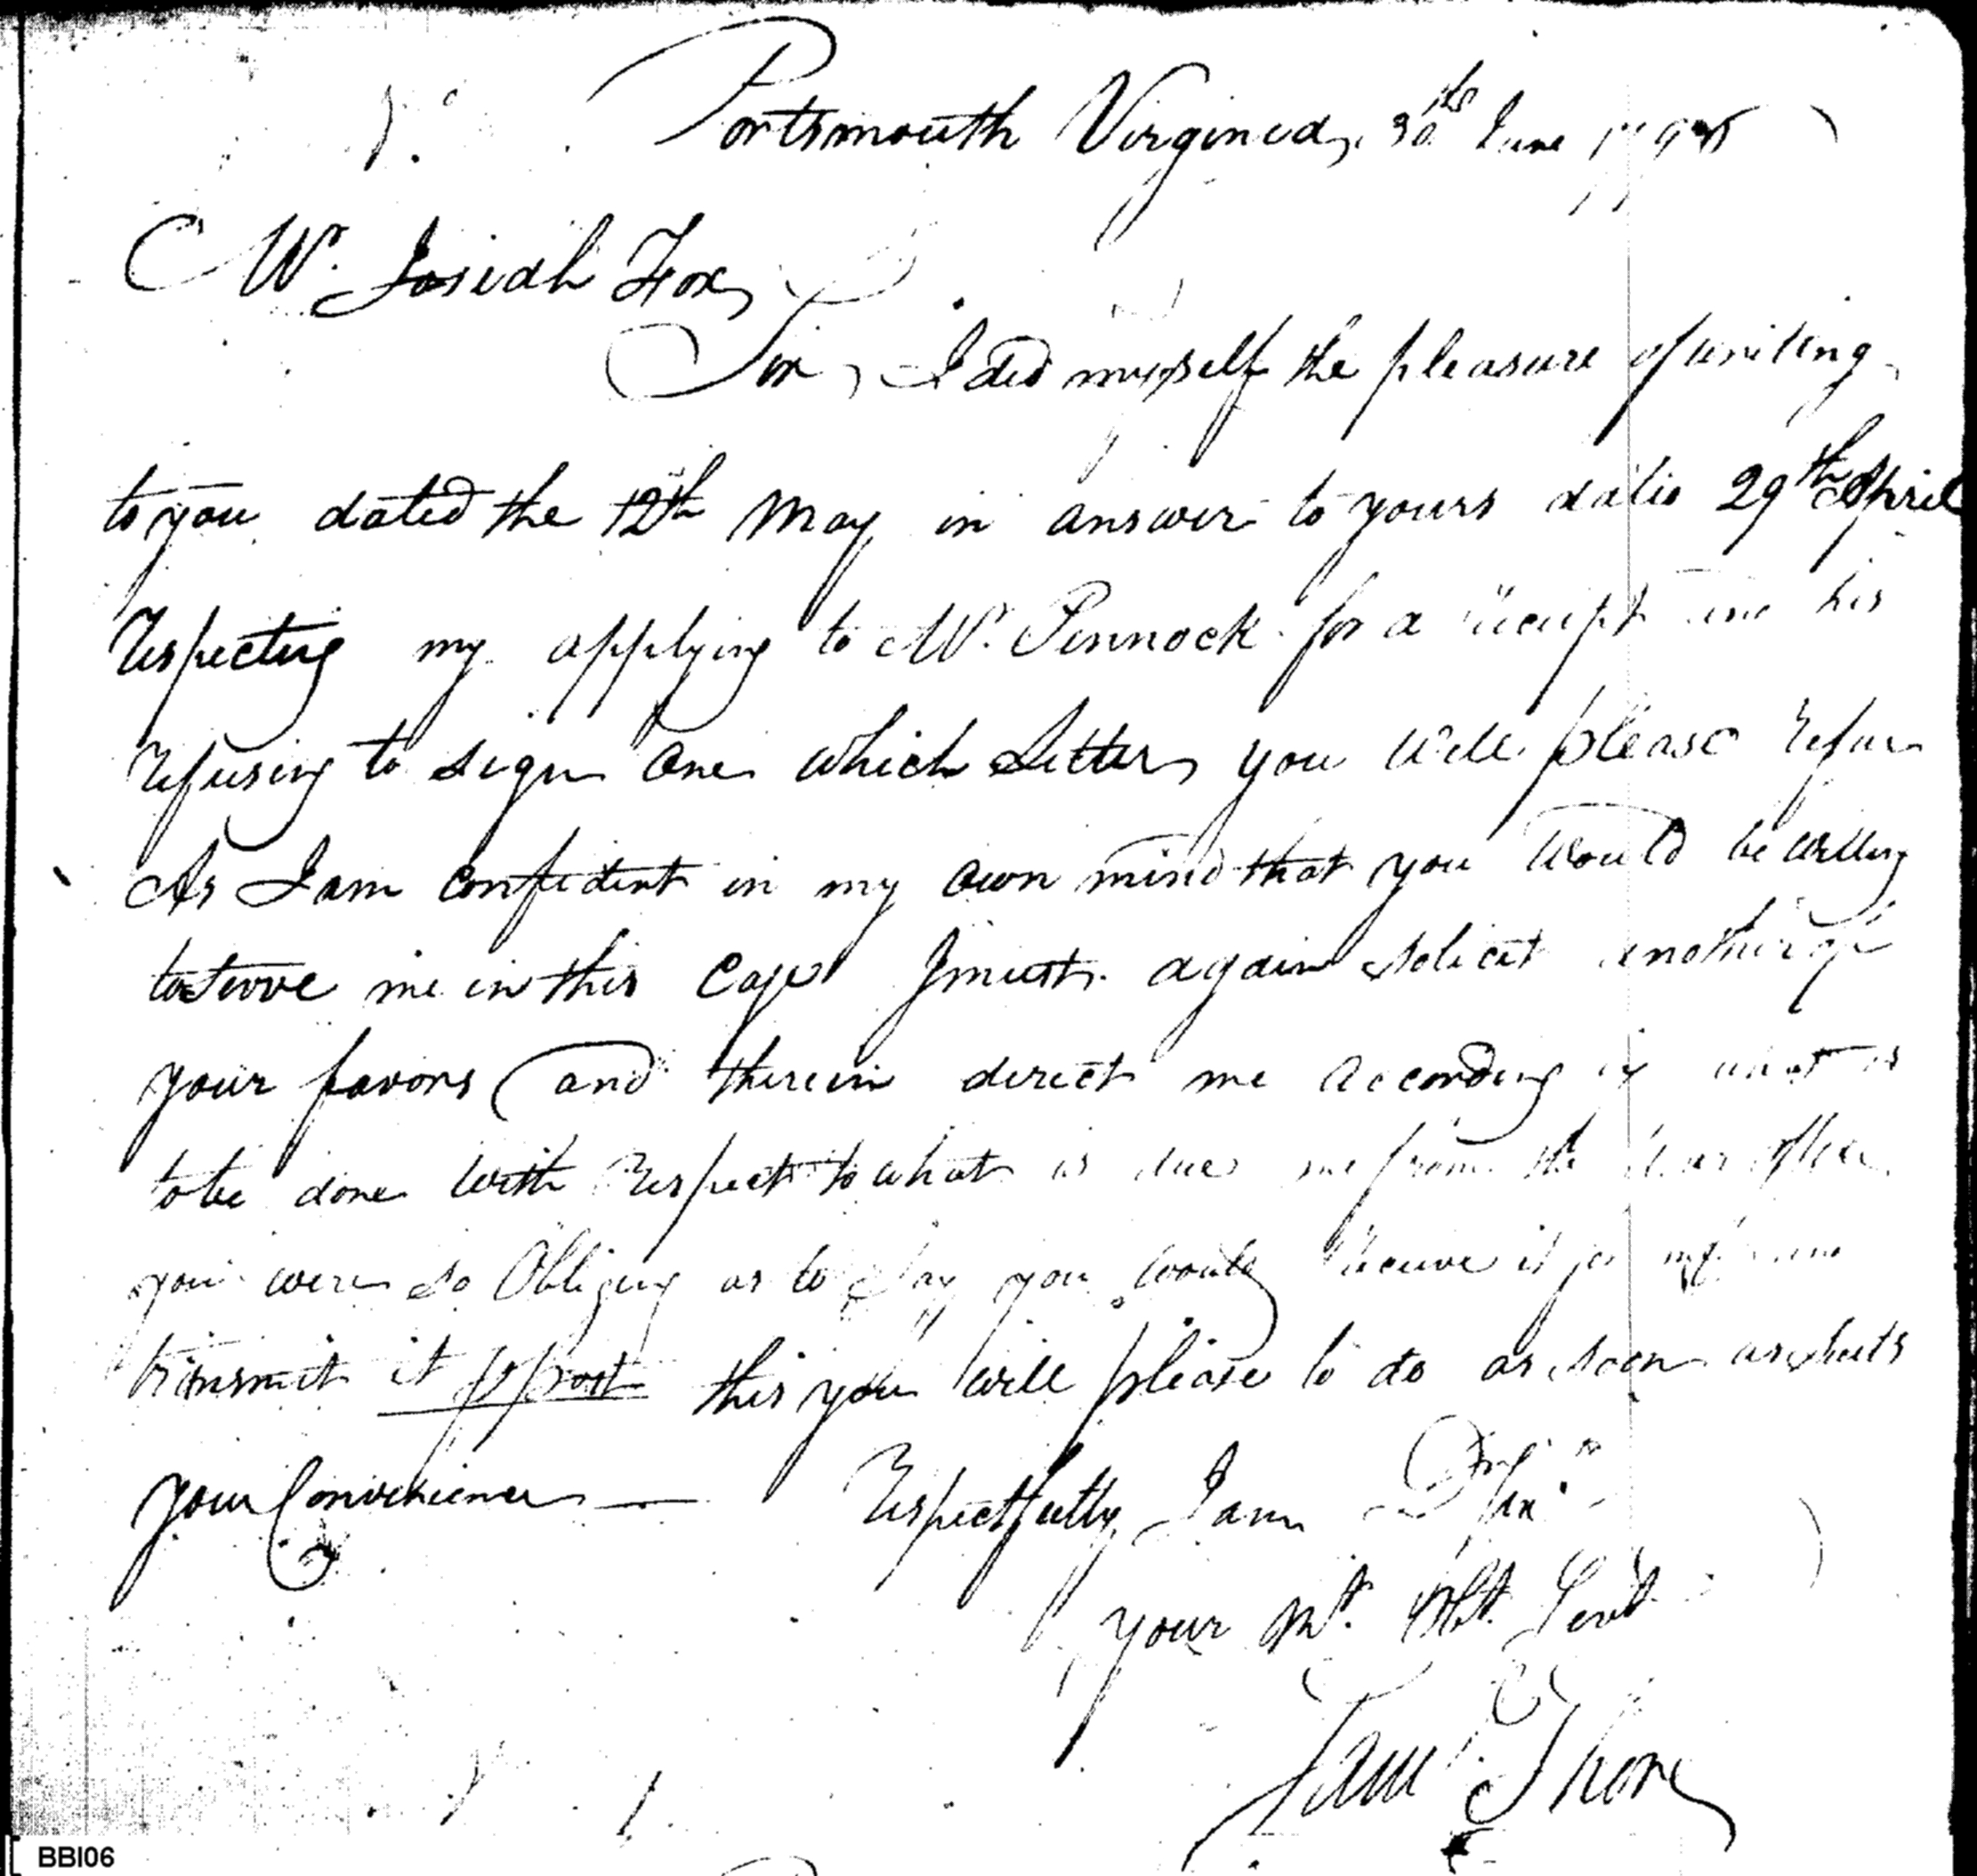 Portsmouth Virginia, 30th June 1795
Mr. Josiah Fox,
Sir, I did myself the pleasure of writing
to you dated the 12th May in answer to yours datd 29th April
respecting my applying to Mr. Pennock for a receipt and his
refusing to sign one which Letter you will please refer
As I am confident in my own mind that you would be willing
to serve me in this Case I must again solicit another of
your favors and therein direct me according what is
to be done with respect to what is due me from the War Office
you were so Obliging as to say you would receive it for me and
transmit it pr post this you will please to do as soon as suits
your Convenience — Respectfully I am Dr Sir
your Mt. Obt. Servt
Saml Shore
BBI06